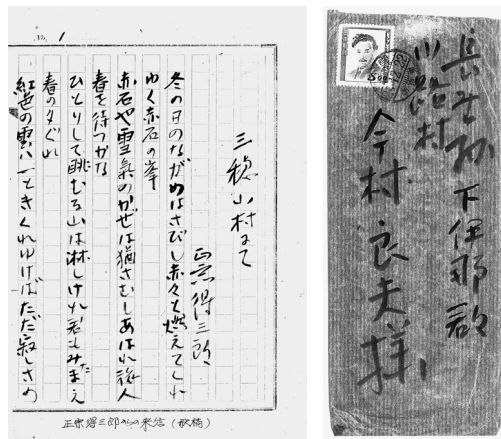 三穂山村にて
正宗得三郎
冬の日のながめはさびし赤々と燃えてくれ
ゆく赤石の峯
赤石や雪氣のかぜは猶さむしあはれ旅人
春を待つかな
ひとりして眺むる山は淋しけれ君もみまえ
春の夕ぐれ
紅色の雲八一ときくれゆけばただ寂しさの
正宗得三郎からの来信(歌稿)
長野縣下伊那郡
川路村
今村良夫様